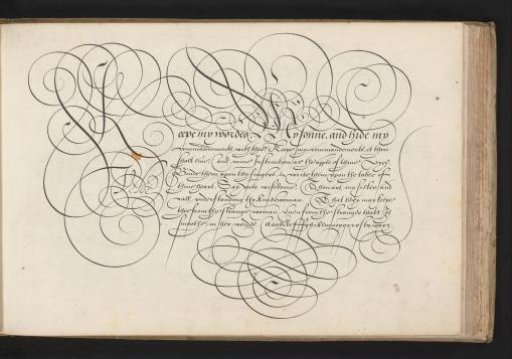 Keepe my wordes, My sonne, and hide my
commandements with thee. Keepe my commandements, & thou
shalt live, and mine instruction as the apple of thine Eyes.
Binde them upon thy fingers, & write them upon the table of
thine heart. Say unto wisedome, Thou art my sister, and
call understanding thy kinswoman. That they may keepe
thee from the strange woman, even from the stranger that
smoothe in her wordes.